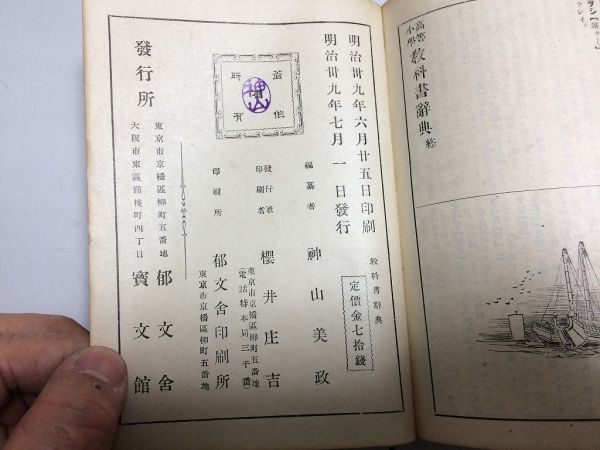 高等
小學
教科書辭典 終
明治卅九年六月廿五日印刷
明治卅九年七月一日發行
教科書辭典
定價金七拾錢
編纂者 神山美政
發行兼
印刷者 櫻井庄吉
東京市京橋區柳町五番地
(電話特本局三千番)
印刷所 郁文舍印刷所
東京市京橋區柳町五番地
著作
所有
神山
發行所
東京市京橋區柳町五番地 郁文舍
大阪市東區備後町四丁目 寶文館